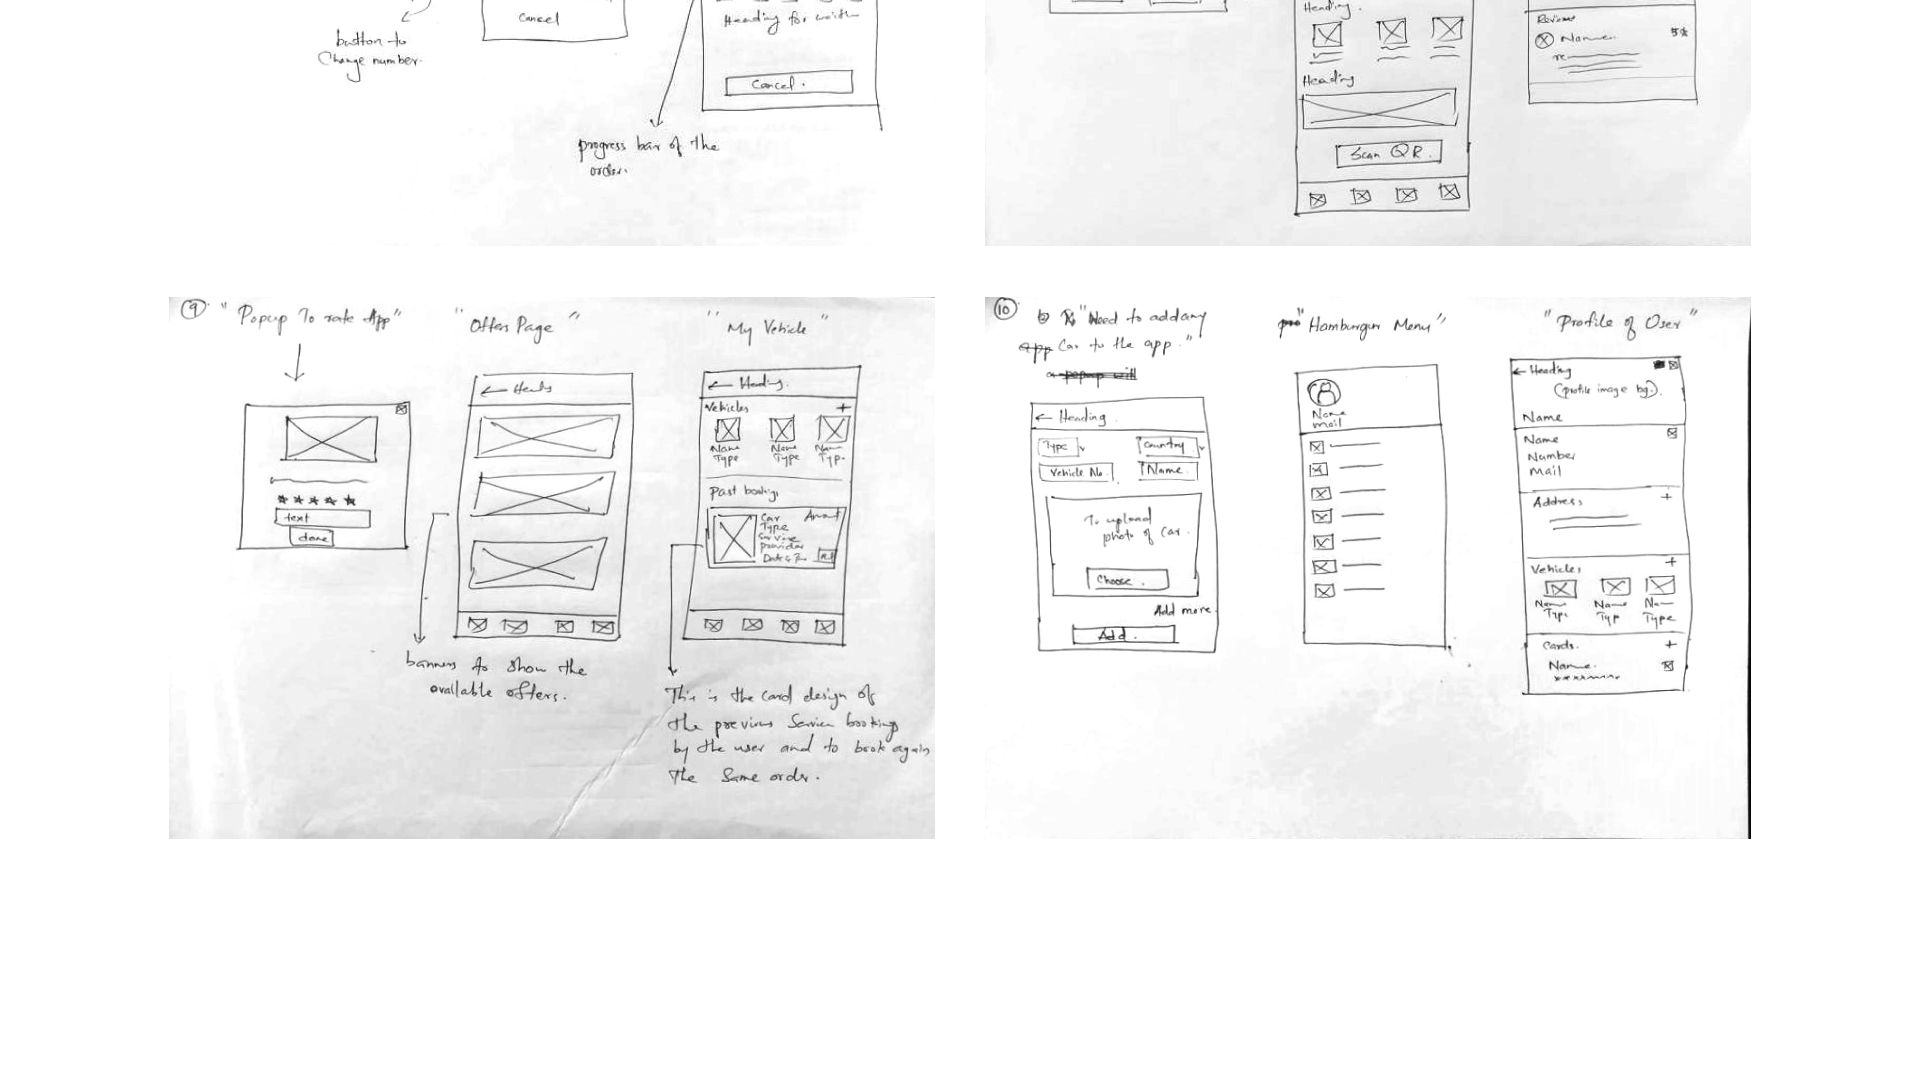 Cancel
button to
Change number.
Heading for waith
Cancel.
progress bar of the
order.
Heading.
Heading
Scan QR.
Reviews
Name.
5★
9 "Popup To rate App"
text
done
"Offers Page"
← Heads
banners to show the
available offers.
"My Vehicle"
← Heading.
Vehicles +
Name Name Name
Type Type Typ.
Past booking,
Car Amount
Type
Service
provider
This is the card design of
the previous Service booking
by the user and to book again
The Same order.
10 "Need to add any
app Car to the app."
← Heading.
Type Country
Vehicle No. Name.
To upload
photo of Car.
Choose.
Add more.
Add.
"Hamburger Menu"
Name
mail
"Profile of User"
← Heading
(profile image bg).
Name
Name
Number
Mail
Address, +
Vehicles +
Name Name Name
Type Typ Type
Cards. +
Name.